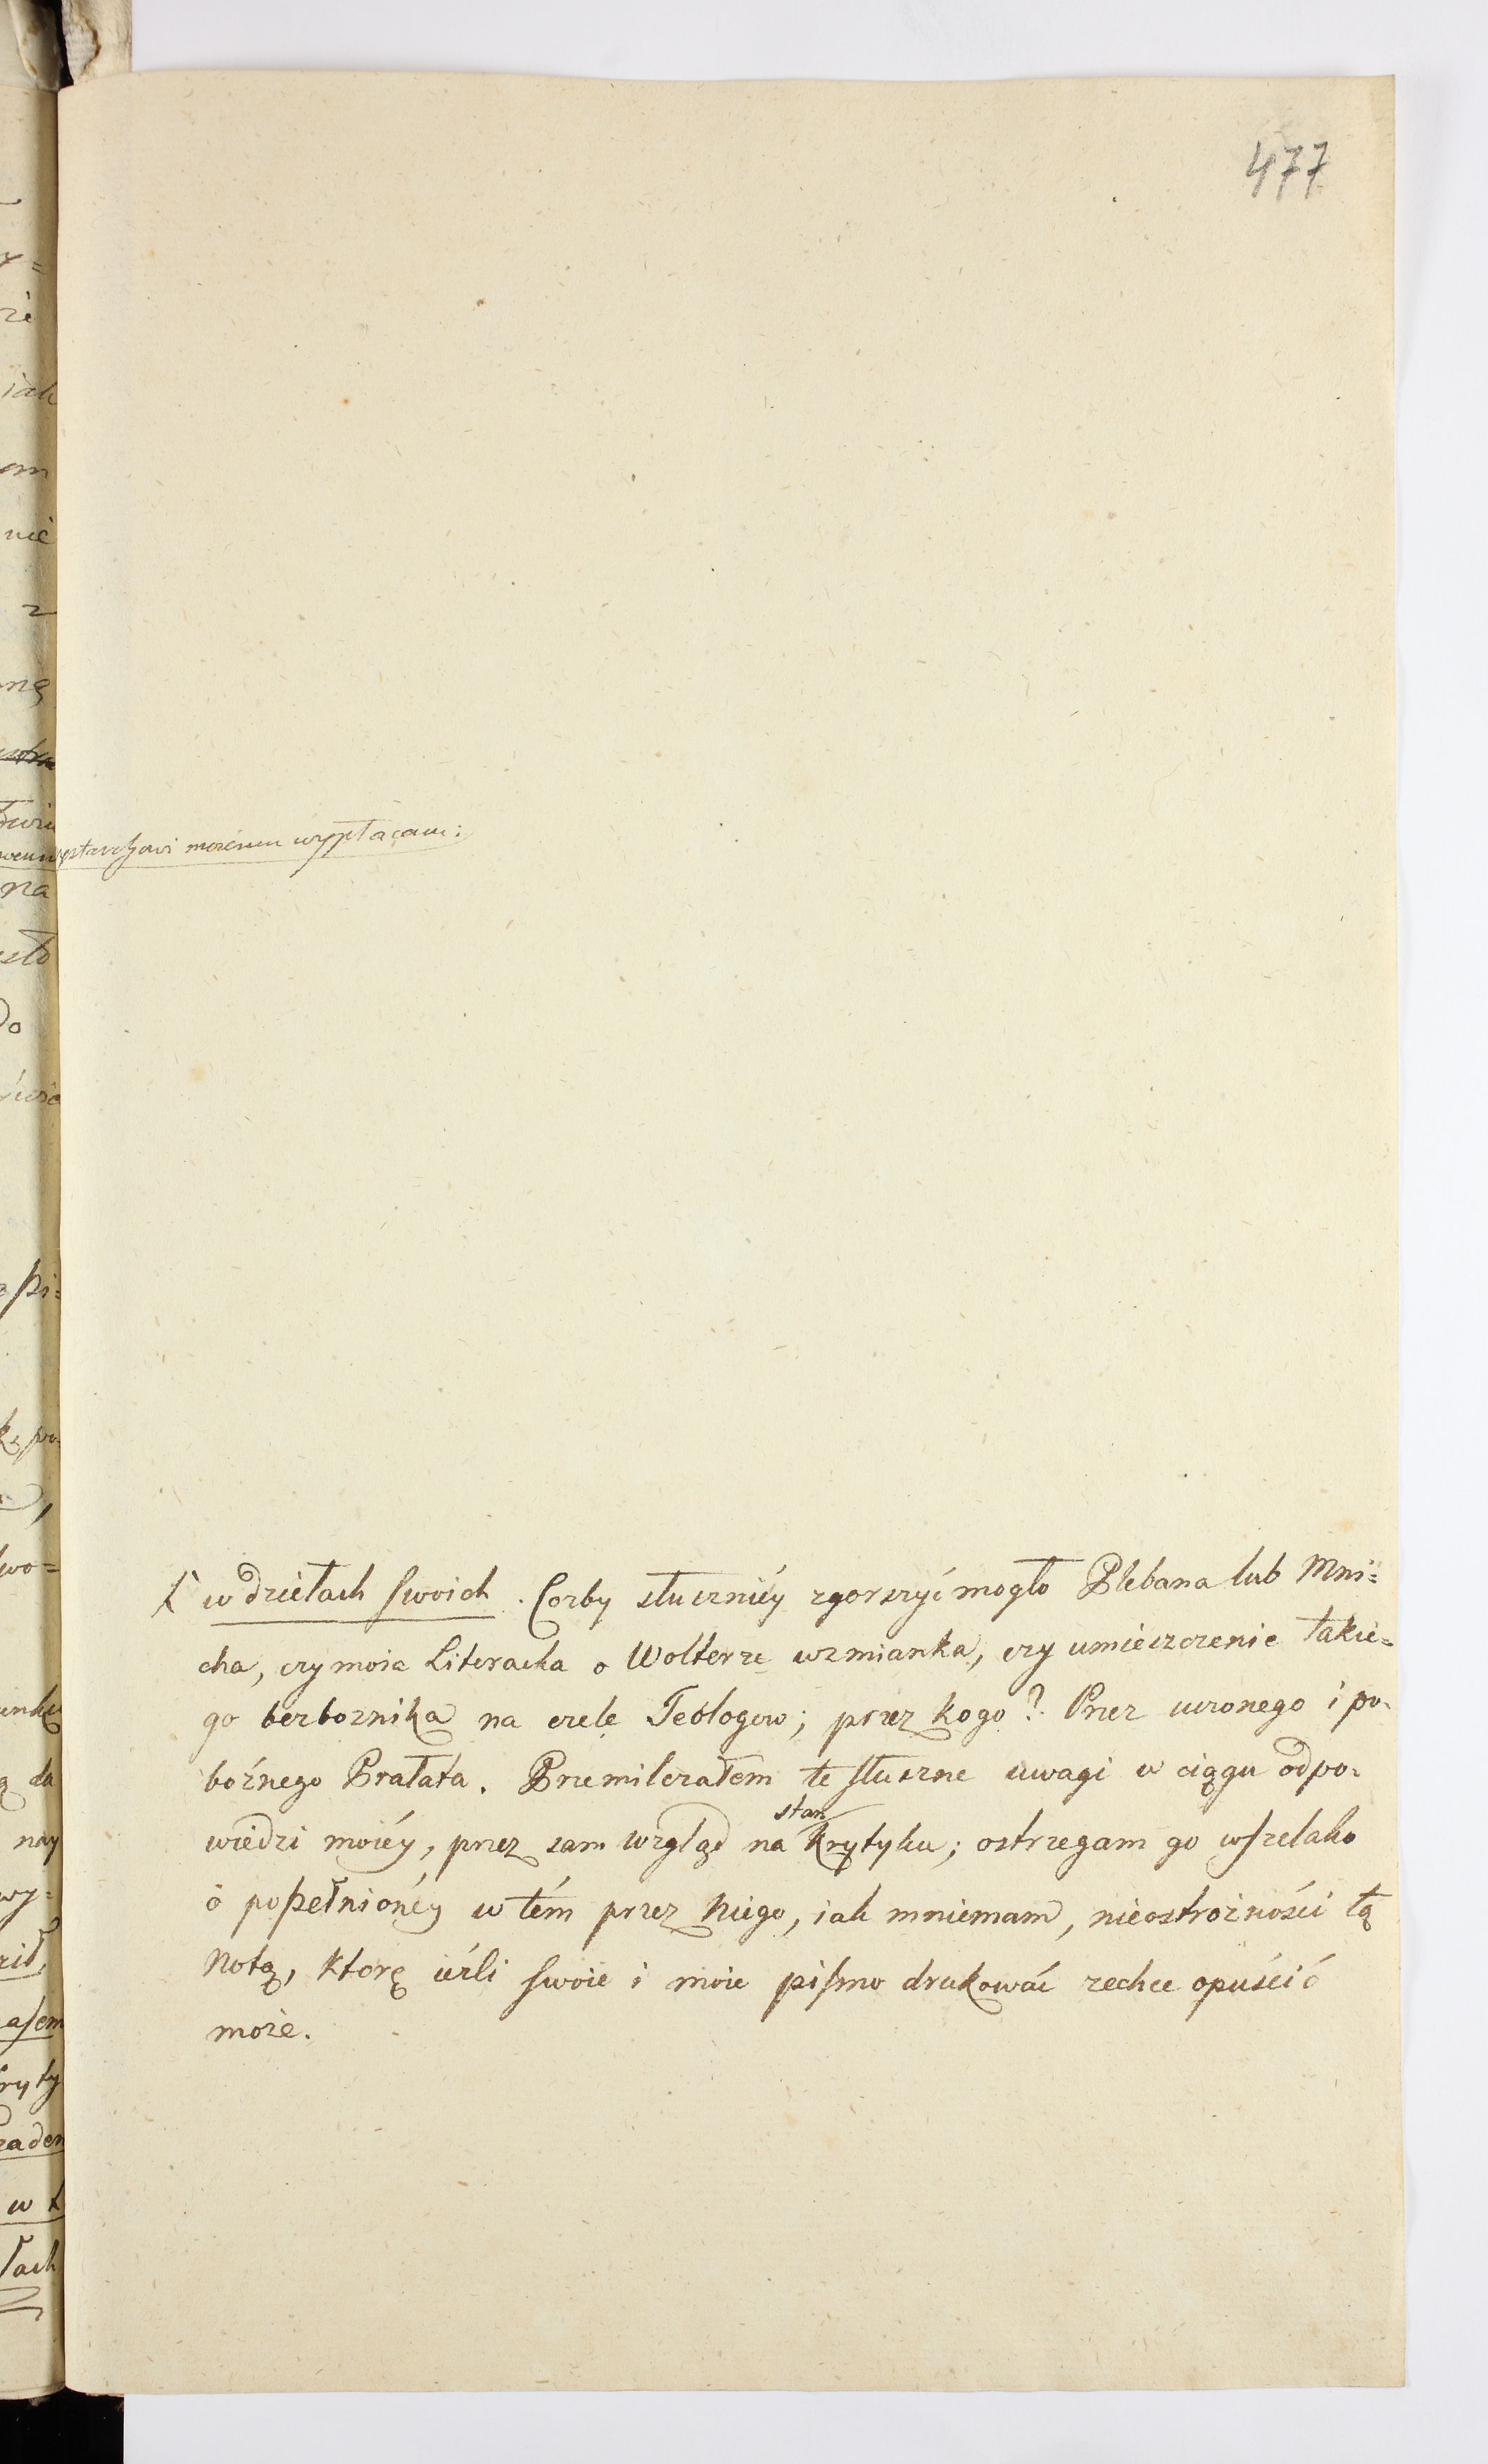 477
morému wypłacam:
w dziełach swoich. Cożby słuszniéy zgorszyć mogło Plebana lub Mni=
cha, czy moia Literacka o Wolterze wzmianka, czy umieszczenie takie=
go bezbożnika na czele Teologow; przez kogo? Przez uczonego i po=
bożnego Prałata. Przemilczałem te słuszne uwagi w ciągu odpo=
wiedzi moiéy, przez sam wzgląd na stan Krytyku; ostrzegam go wszelako
o popełnionéy w tém przez niego, iak mniemam, nieostrożności tą
Notą, ktorę ieśli swoie i moie pismo drukować zechce opuścić
może.